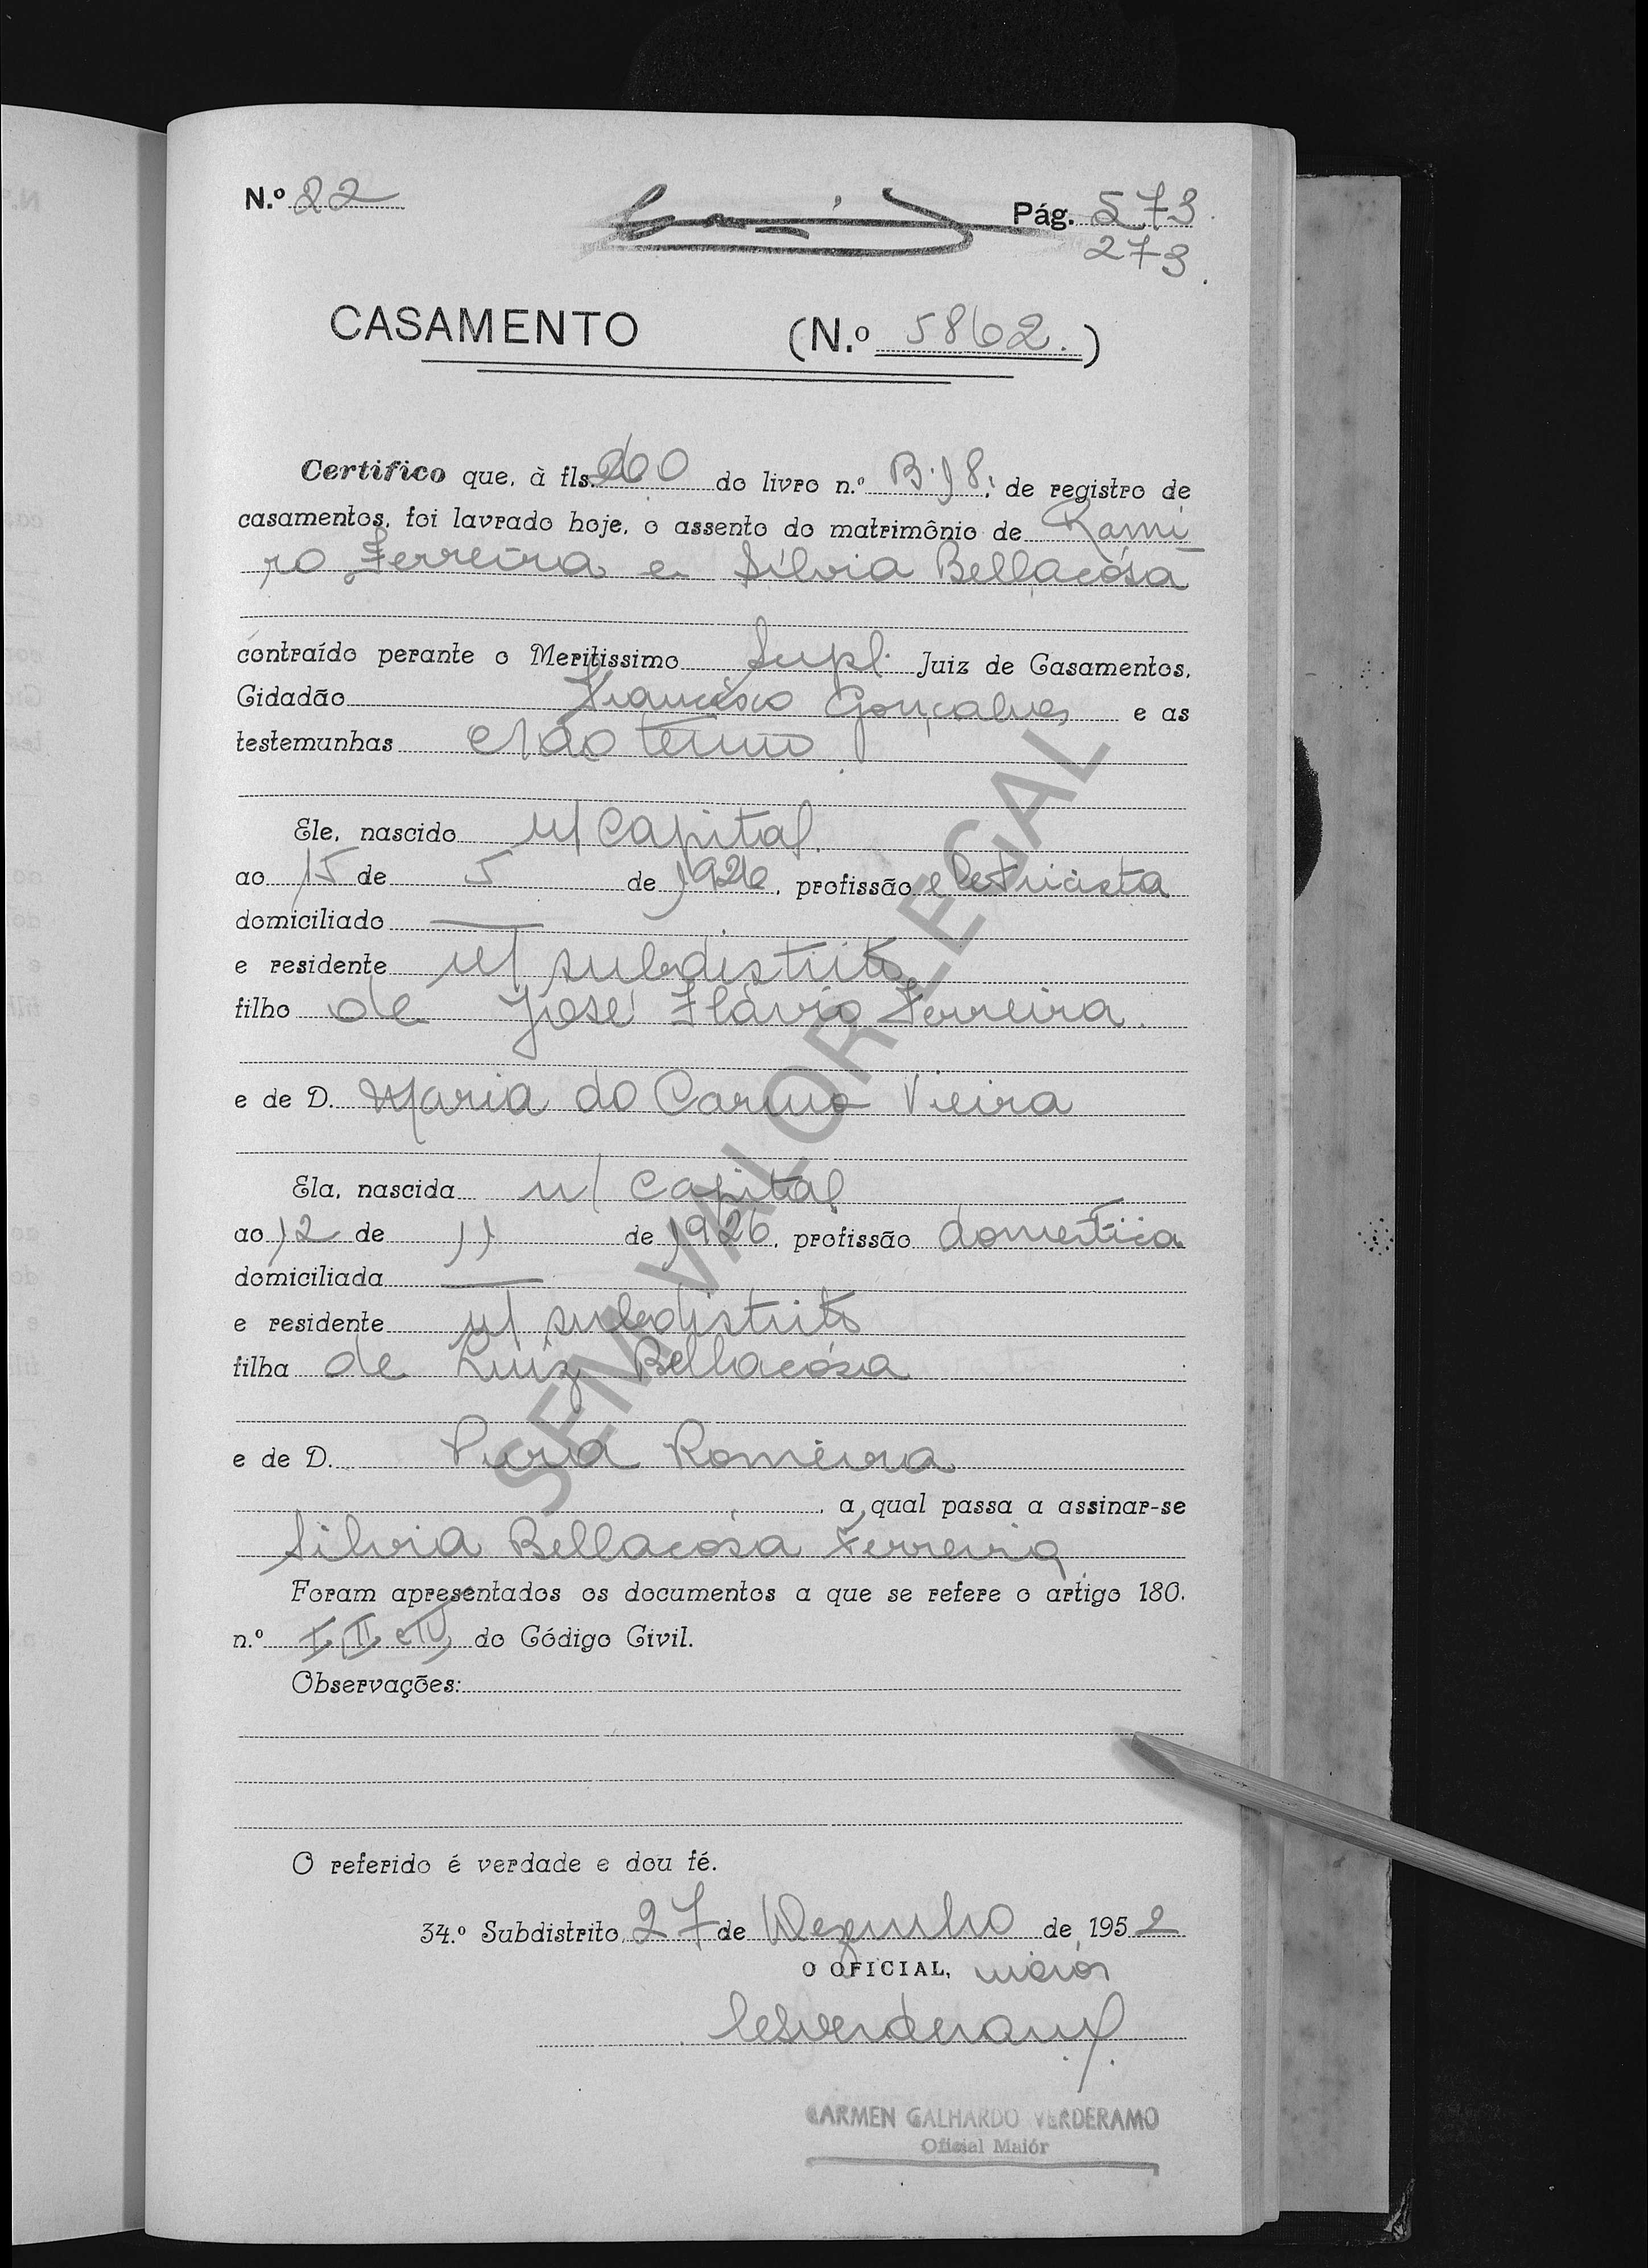 N.º 22
Pág. 573
273
CASAMENTO (N.º 5862.)
Certifico que, à fls. 200 do livro n.º B.18, de registro de
casamentos, foi lavrado hoje, o assento do matrimônio de Rami
ro Ferreira e Sílvia Bellacósa
contraído perante o Meritissimo Supl. Juiz de Casamentos,
Cidadão Francisco Gonçalves e as
testemunhas do termo
Ele, nascido n/ Capital.
ao 15 de 5 de 1926, profissão eletricista
domiciliado —
e residente n/ subdistrito
filho de José Flávio Ferreira.
e de D. Maria do Carmo Vieira
Ela, nascida n/ Capital
ao 12 de 11 de 1926, profissão doméstica
domiciliada —
e residente n/ subdistrito
filha de Luiz Bellacósa
e de D. Pura Romeira
, a qual passa a assinar-se
Silvia Bellacósa Ferreira
Foram apresentados os documentos a que se refere o artigo 180,
n.º I, II, e IV, do Código Civil.
Observações:
O referido é verdade e dou fé.
34.º Subdistrito, 27 de Dezembro de 1952
O OFICIAL, maior
CARMEN GALHARDO VERDERAMO
Oficial Maiór
SEM VALOR LEGAL